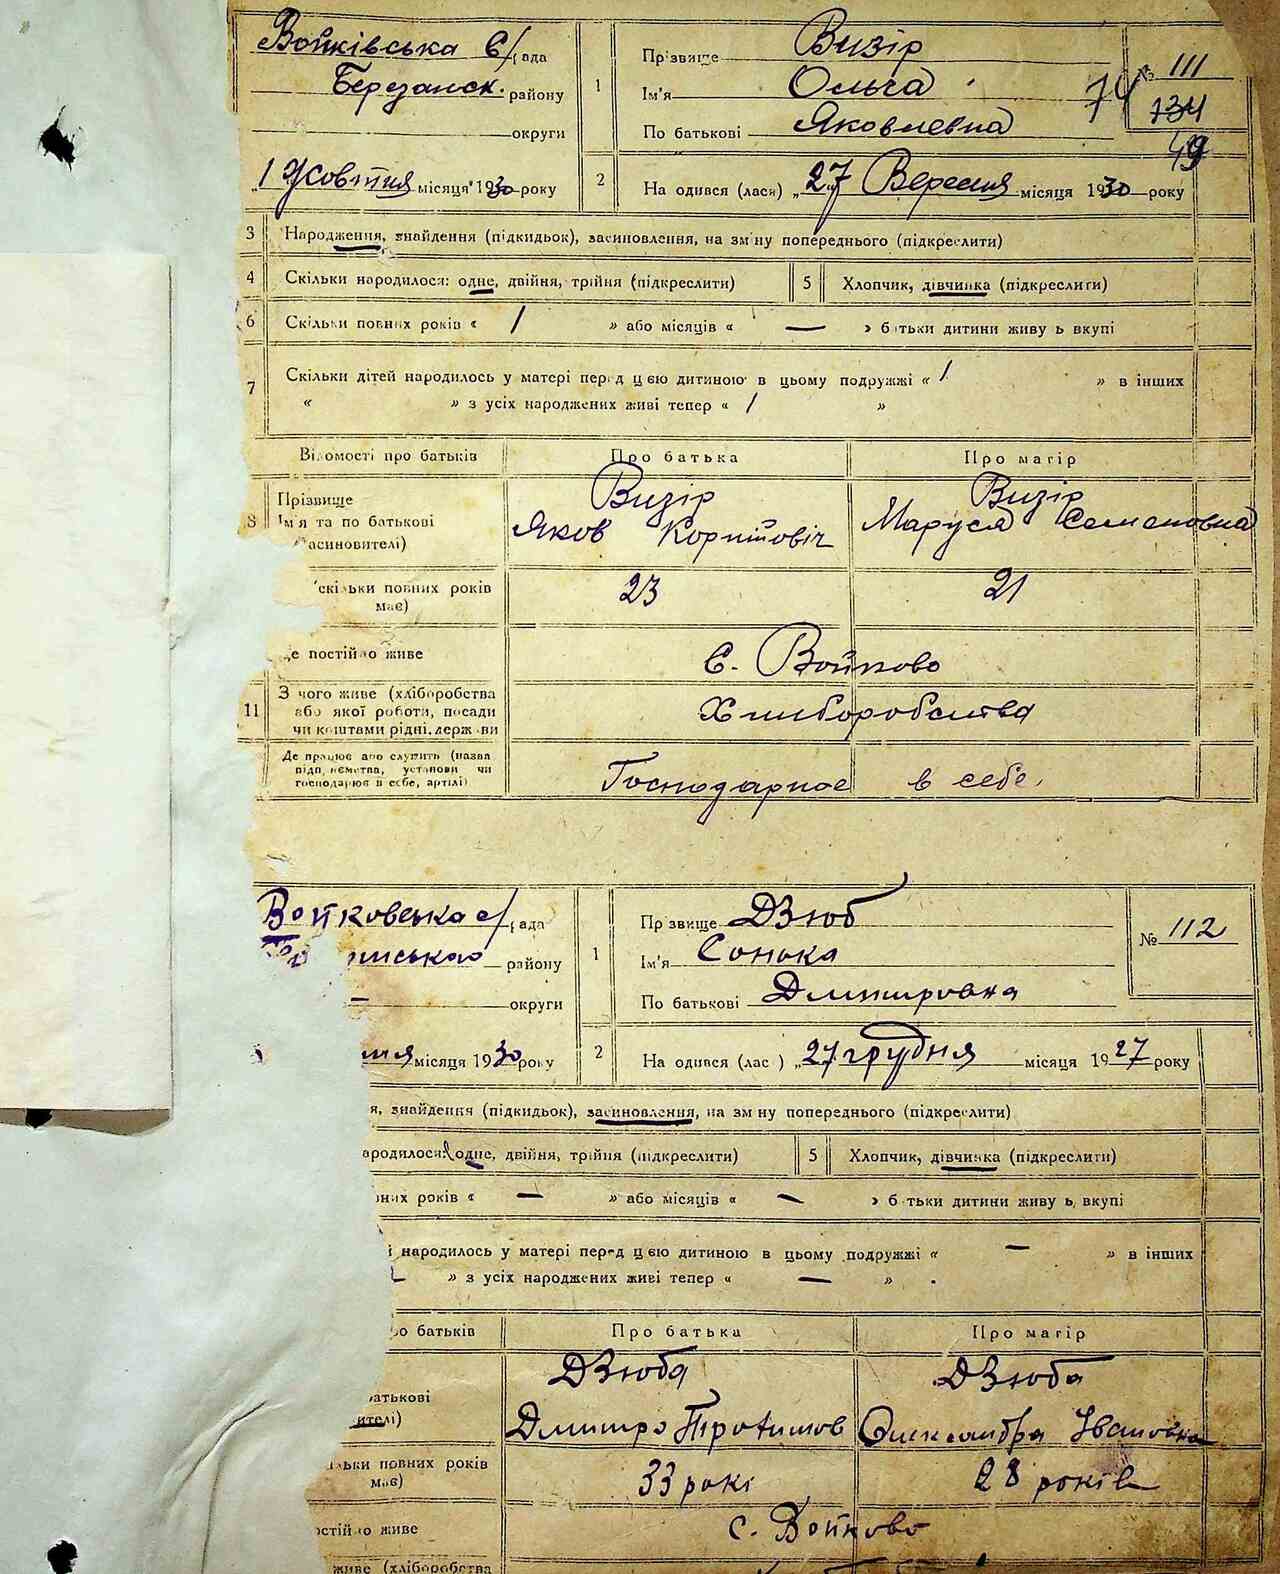 Войківська С/рада
Березанськ. району
округи
„1 Жовтня місяця 1930 року
1
Прізвище Визір
Ім'я Ольга
По батькові Яковлевна
74
№ 111
134
49
2
На одився (лася) „27 Вересня місяця 1930 року
3 Народження, знайдення (підкидьок), засиновлення, на зміну попереднього (підкреслити)
4 Скільки народилося: одне, двійня, трійня (підкреслити) 5 Хлопчик, дівчинка (підкреслити)
6 Скільки повних років « 1 » або місяців « — » батьки дитини живу ь вкупі
7 Скільки дітей народилось у матері перед цією дитиною в цьому подружжі « 1 » в інших
« » з усіх народжених живі тепер « 1 »
Відомості про батьків Про батька Про матір
8 Прізвище
Ім'я та по батькові
засиновителі)
Визір
Яков
Визір
Маруся Семеновна
скільки повних років
має) 23 21
де постійно живе с. Войково
11 З чого живе (хліборобства
або якої роботи, посади
чи коштами рідні, держави
Хлиборобства
Де працює або служить (назва
підп иємства, установи чи
господарює в себе, артілі)
Господарное в себе.
Войковська с/рада
району
— округи
місяця 1930 року
1
Пр звище Дзюб
Ім'я Сонька
По батькові Дмитровна
№ 112
2
На одився (лас ) „27 грудня місяця 1927 року
я, знайдення (підкидьок), засиновлення, на зм ну попереднього (підкреслити)
ародилося: одне, двійня, трійня (підкреслити) 5 Хлопчик, дівчинка (підкреслити)
них років « — » або місяців « — » б тьки дитини живу ь вкупі
і народилось у матері перед цією дитиною в цьому подружжі « — » в інших
» з усіх народжених живі тепер « — » .
ро батьків Про батька Про матір
батькові
ителі)
Дзюба
Дмитро Трофимов
Дзюба
Олександра Івановна
льки повних років
має) 33 рокі 28 років
остій о живе с. Войково
живе (хліборобства